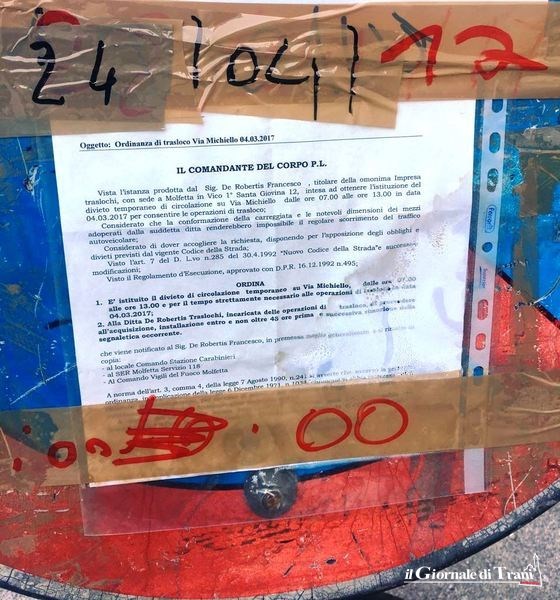 24 04 17
Oggetto: Ordinanza di trasloco Via Michiello 04.03.2017
IL COMANDANTE DEL CORPO P.L.
Vista l'istanza prodotta dal Sig. De Robertis Francesco , titolare della omonima Impresa
traslochi, con sede a Molfetta in Vico 1° Santa Giovina 12, intesa ad ottenere l'istituzione del
divieto temporaneo di circolazione su Via Michiello dalle ore 07.00 alle ore 13.00 in data
04.03.2017 per consentire le operazioni di trasloco;
Considerato che la conformazione della carreggiata e le notevoli dimensioni dei mezzi
adoperati dalla suddetta ditta renderebbero impossibile il regolare scorrimento del traffico
autoveicolare;
Considerato di dover accogliere la richiesta, disponendo per l'apposizione degli obblighi e
divieti previsti dal vigente Codice della Strada;
Visto l'art. 7 del D. L.vo n.285 del 30.4.1992 "Nuovo Codice della Strada"e successive
modificazioni;
Visto il Regolamento d'Esecuzione, approvato con D.P.R. 16.12.1992 n.495;
ORDINA
1. E' istituito il divieto di circolazione temporaneo su Via Michiello, dalle ore 07.00
alle ore 13.00 e per il tempo strettamente necessario alle operazioni di trasloco in data
04.03.2017;
2. Alla Ditta De Robertis Traslochi, incaricata delle operazioni di trasloco, di provvedere
all'acquisizione, installazione entro e non oltre 48 ore prima e successiva rimozione della
segnaletica occorrente.
che viene notificato al Sig. De Robertis Francesco, in premessa meglio generalizzato e si
copia:
- al locale Comando Stazione Carabinieri
- al SER Molfetta Servizio 118
- Al Comando Vigili del Fuoco Molfetta
A norma dell'art. 3, comma 4, della legge 7 Agosto 1990, n.241 si avverte che, avverso la
ordinanza, in applicazione della legge 6 Dicembre 1971, n.1034,
00
il Giornale di Trani